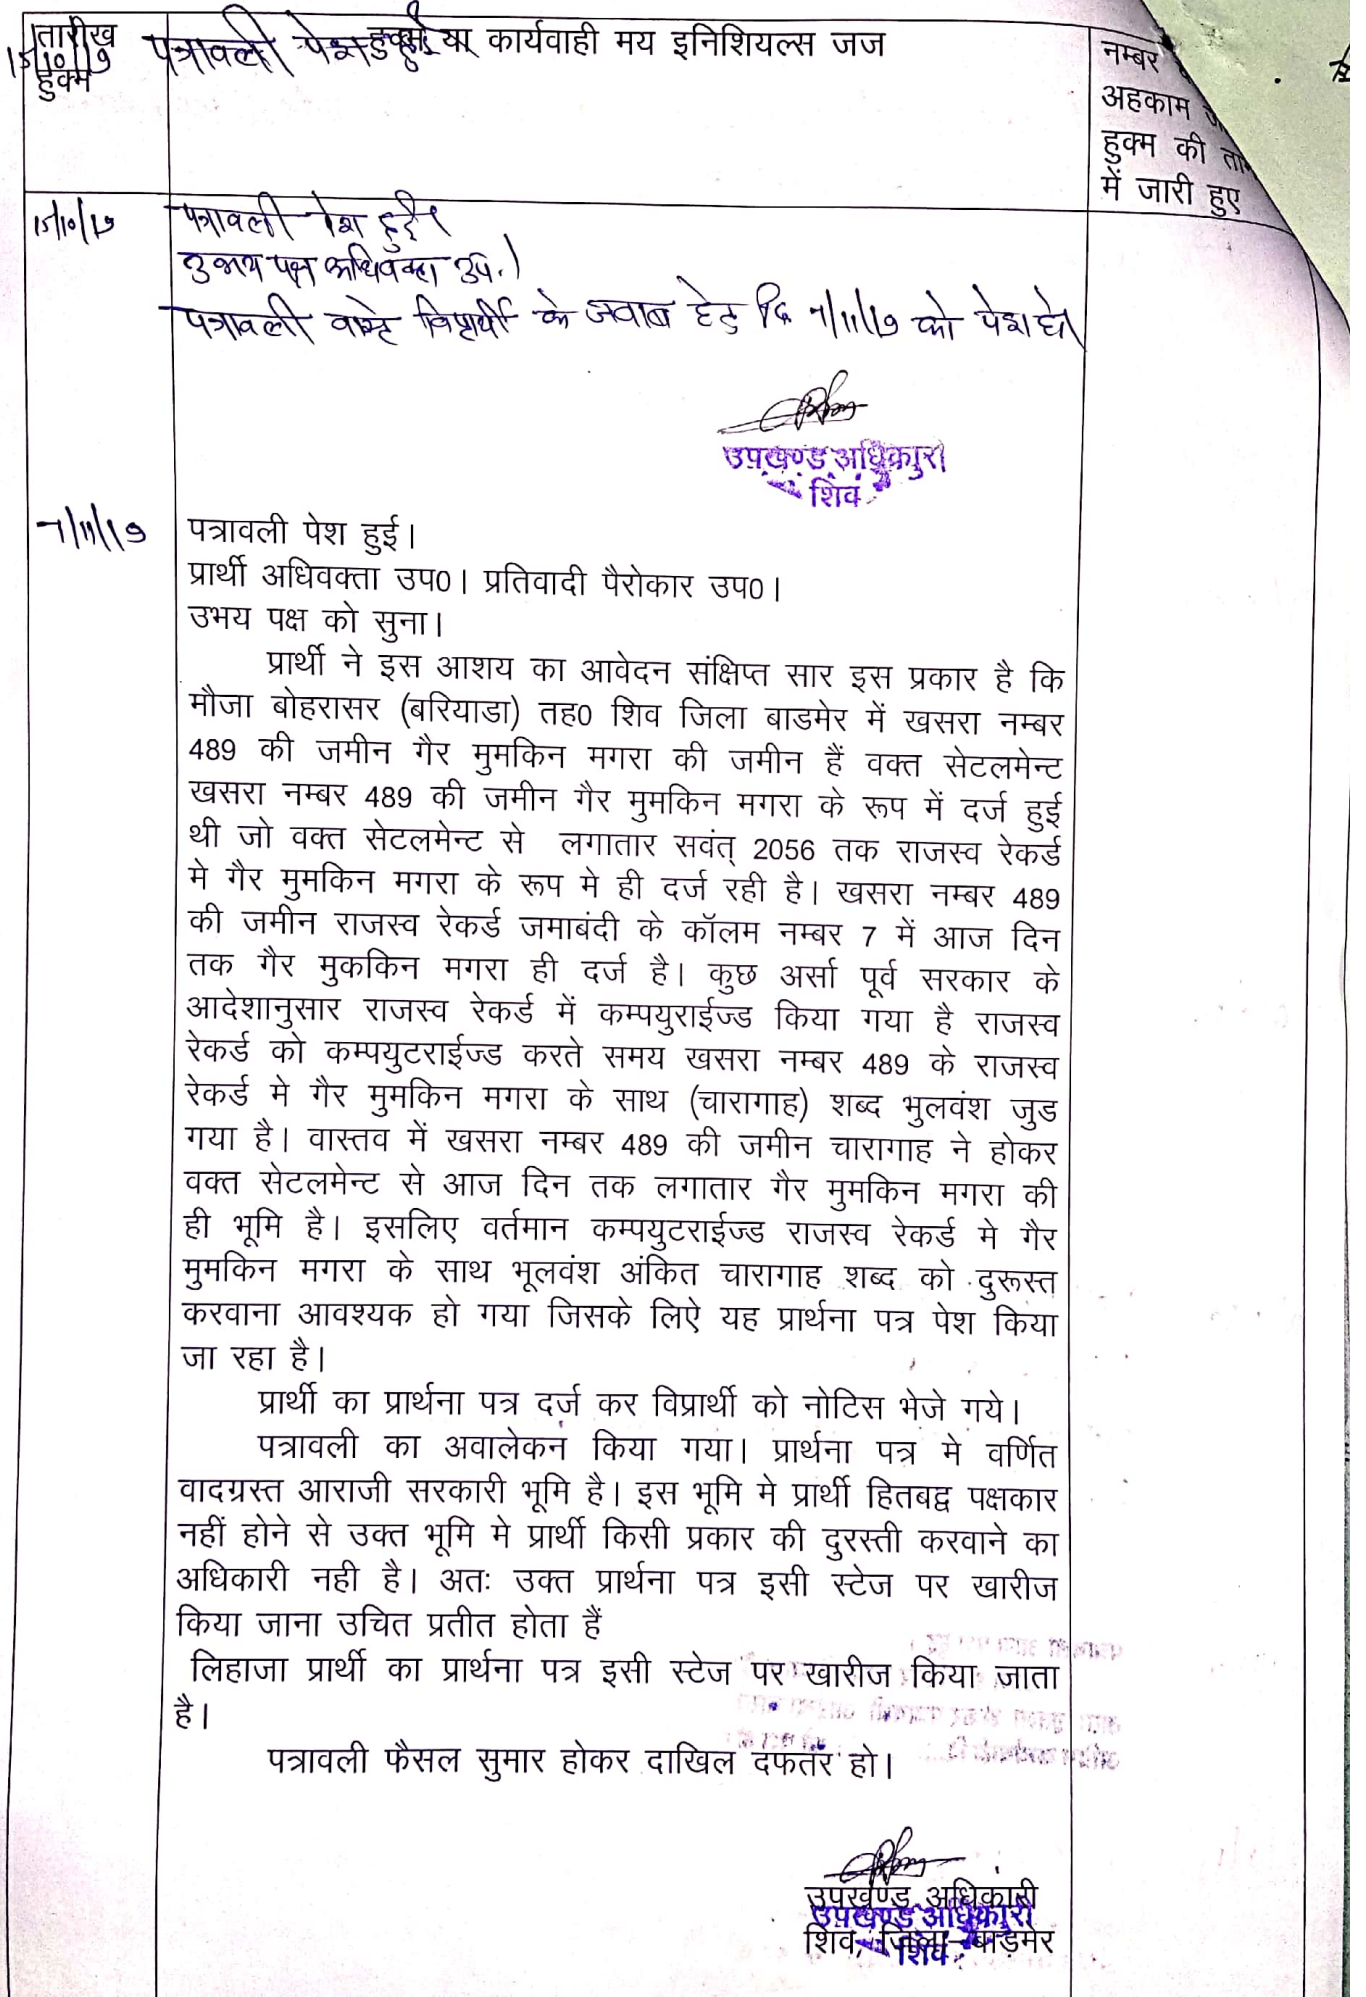 तारीख
हुक्म
15/10/19
पत्रावली पेश हुई
हुक्म या कार्यवाही मय इनिशियल्स जज
नम्बर
अहकाम
हुक्म की
में जारी हुए
15/10/19
पत्रावली पेश हुई।
उभय पक्ष अधिवक्ता उप.।
पत्रावली वास्ते विप्रार्थी के जवाब हेतु दि 7/11/19 को पेश हो।
उपखण्ड अधिकारी
शिव
7/11/19
पत्रावली पेश हुई।
प्रार्थी अधिवक्ता उप0। प्रतिवादी पैरोकार उप0।
उभय पक्ष को सुना।
प्रार्थी ने इस आशय का आवेदन संक्षिप्त सार इस प्रकार है कि
मौजा बोहरासर (बरियाडा) तह0 शिव जिला बाडमेर में खसरा नम्बर
489 की जमीन गैर मुमकिन मगरा की जमीन हैं वक्त सेटलमेन्ट
खसरा नम्बर 489 की जमीन गैर मुमकिन मगरा के रूप में दर्ज हुई
थी जो वक्त सेटलमेन्ट से लगातार सवंत् 2056 तक राजस्व रेकर्ड
मे गैर मुमकिन मगरा के रूप मे ही दर्ज रही है। खसरा नम्बर 489
की जमीन राजस्व रेकर्ड जमाबंदी के कॉलम नम्बर 7 में आज दिन
तक गैर मुककिन मगरा ही दर्ज है। कुछ अर्सा पूर्व सरकार के
आदेशानुसार राजस्व रेकर्ड में कम्पयुराईज्ड किया गया है राजस्व
रेकर्ड को कम्पयुटराईज्ड करते समय खसरा नम्बर 489 के राजस्व
रेकर्ड मे गैर मुमकिन मगरा के साथ (चारागाह) शब्द भुलवंश जुड
गया है। वास्तव में खसरा नम्बर 489 की जमीन चारागाह ने होकर
वक्त सेटलमेन्ट से आज दिन तक लगातार गैर मुमकिन मगरा की
ही भूमि है। इसलिए वर्तमान कम्पयुटराईज्ड राजस्व रेकर्ड मे गैर
मुमकिन मगरा के साथ भूलवंश अंकित चारागाह शब्द को दुरूस्त
करवाना आवश्यक हो गया जिसके लिऐ यह प्रार्थना पत्र पेश किया
जा रहा है।
प्रार्थी का प्रार्थना पत्र दर्ज कर विप्रार्थी को नोटिस भेजे गये।
पत्रावली का अवालेकन किया गया। प्रार्थना पत्र मे वर्णित
वादग्रस्त आराजी सरकारी भूमि है। इस भूमि मे प्रार्थी हितबद्व पक्षकार
नहीं होने से उक्त भूमि मे प्रार्थी किसी प्रकार की दुरस्ती करवाने का
अधिकारी नही है। अतः उक्त प्रार्थना पत्र इसी स्टेज पर खारीज
किया जाना उचित प्रतीत होता हैं
लिहाजा प्रार्थी का प्रार्थना पत्र इसी स्टेज पर खारीज किया जाता
है।
पत्रावली फैसल सुमार होकर दाखिल दफतर हो।
उपखण्ड अधिकारी
उपखण्ड अधिकारी
शिव, जिला–बाड़मेर
शिव